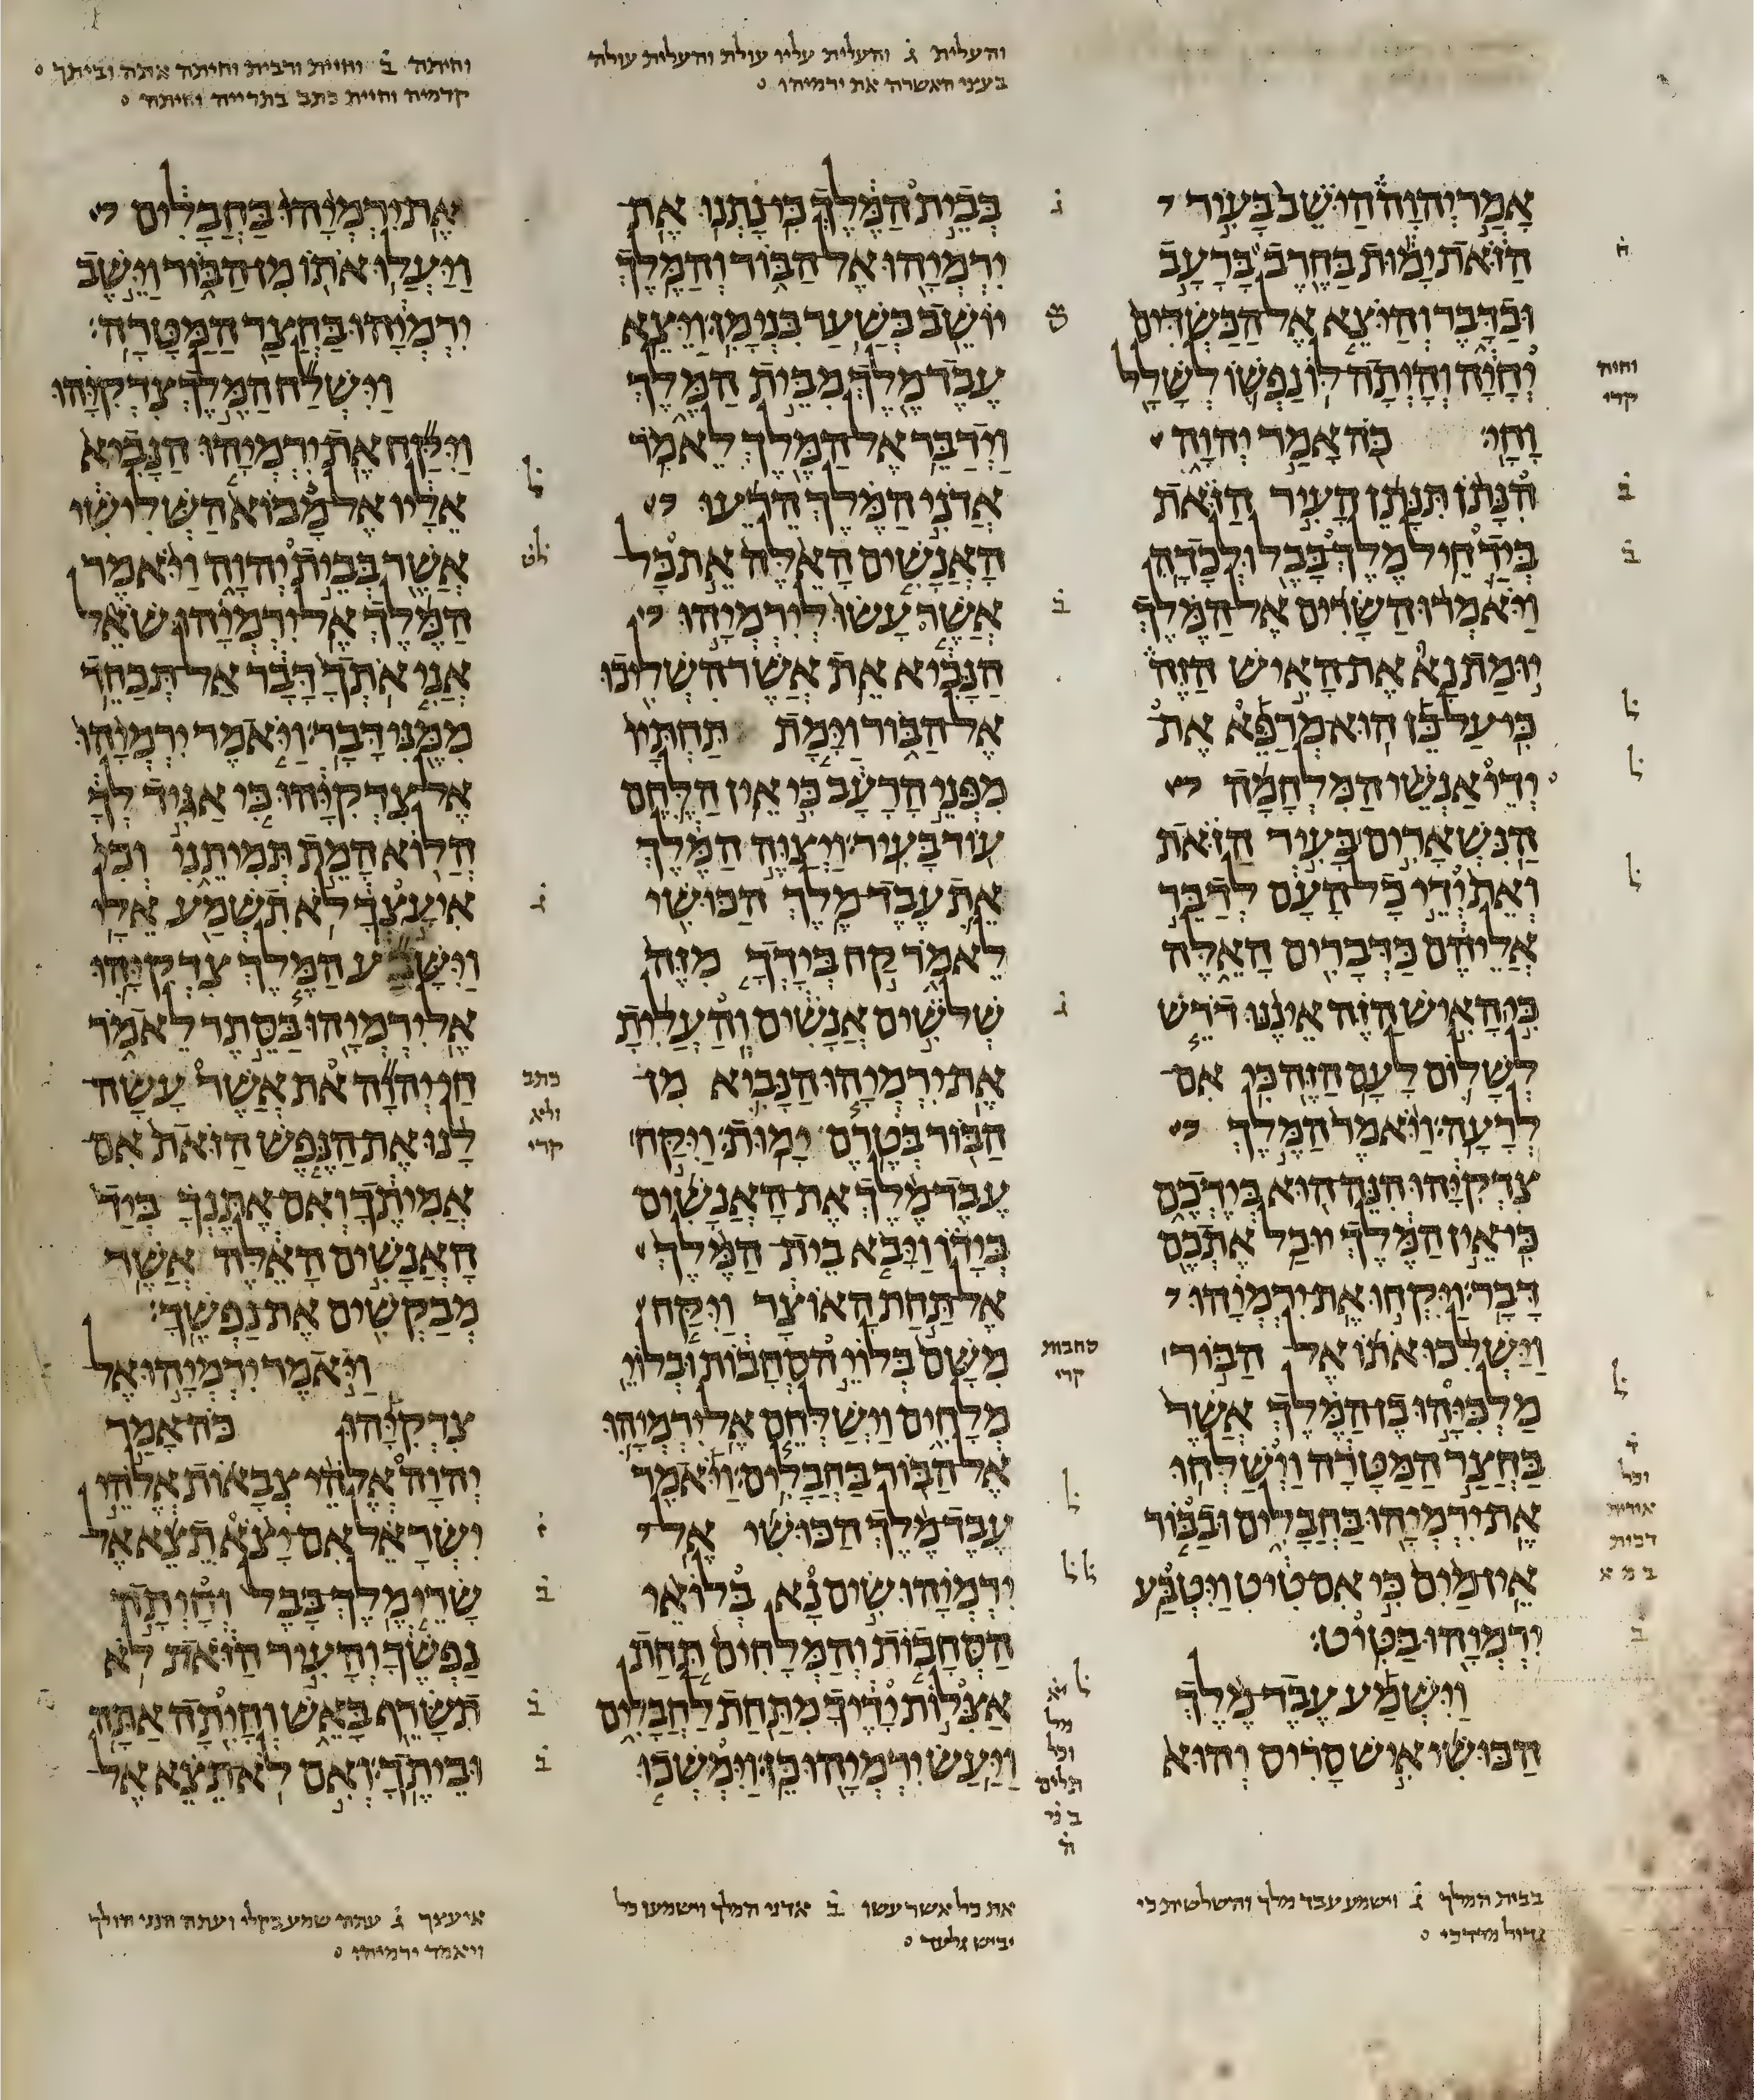 והעלית ג̇ והעלית עליו עולת והעלית עולה
בעצי האשרה את ירמיהו ס
וחיתה ב̇ וחיית ורבית וחיתה אתה וביתך ס
קדמיה וחיית כתב בתרייה וחיתה ס
אָמַר יְהוָה הַיֹּשֵׁב בָּעִיר
הַזֹּאת יָמוּת בַּחֶרֶב בָּרָעָב
וּבַדָּבֶר וְהַיֹּצֵא אֶל הַכַּשְׂדִּים
יְחָיָה וְהָיְתָה לּוֹ נַפְשׁוֹ לְשָׁלָל
וָחָי׃ כֹּה אָמַר יְהוָה
הִנָּתֹן תִּנָּתֵן הָעִיר הַזֹּאת
בְּיַד חֵיל מֶלֶךְ בָּבֶל וּלְכָדָהּ׃
וַיֹּאמְרוּ הַשָּׂרִים אֶל הַמֶּלֶךְ
יוּמַת נָא אֶת הָאִישׁ הַזֶּה
כִּי עַל כֵּן הוּא מְרַפֵּא אֶת
יְדֵי אַנְשֵׁי הַמִּלְחָמָה
הַנִּשְׁאָרִים בָּעִיר הַזֹּאת
וְאֵת יְדֵי כָל הָעָם לְדַבֵּר
אֲלֵיהֶם כַּדְּבָרִים הָאֵלֶּה
כִּי הָאִישׁ הַזֶּה אֵינֶנּוּ דֹרֵשׁ
לְשָׁלוֹם לָעָם הַזֶּה כִּי אִם
לְרָעָה׃ וַיֹּאמֶר הַמֶּלֶךְ
צִדְקִיָּהוּ הִנֵּה הוּא בְּיֶדְכֶם
כִּי אֵין הַמֶּלֶךְ יוּכַל אֶתְכֶם
דָּבָר׃ וַיִּקְחוּ אֶת יִרְמְיָהוּ
וַיַּשְׁלִכוּ אֹתוֹ אֶל הַבּוֹר
מַלְכִּיָּהוּ בֶן הַמֶּלֶךְ אֲשֶׁר
בַּחֲצַר הַמַּטָּרָה וַיְשַׁלְּחוּ
אֶת יִרְמְיָהוּ בַּחֲבָלִים וּבַבּוֹר
אֵין מַיִם כִּי אִם טִיט וַיִּטְבַּע
יִרְמְיָהוּ בַּטִּיט׃
וַיִּשְׁמַע עֶבֶד מֶלֶךְ
הַכּוּשִׁי אִישׁ סָרִיס וְהוּא
וחיה
קרי
בְּבֵית הַמֶּלֶךְ כִּי נָתְנוּ אֶת
יִרְמְיָהוּ אֶל הַבּוֹר וְהַמֶּלֶךְ
יוֹשֵׁב בְּשַׁעַר בִּנְיָמִן׃ וַיֵּצֵא
עֶבֶד מֶלֶךְ מִבֵּית הַמֶּלֶךְ
וַיְדַבֵּר אֶל הַמֶּלֶךְ לֵאמֹר׃
אֲדֹנִי הַמֶּלֶךְ הֵרֵעוּ
הָאֲנָשִׁים הָאֵלֶּה אֵת כָּל
אֲשֶׁר עָשׂוּ לְיִרְמְיָהוּ
הַנָּבִיא אֵת אֲשֶׁר הִשְׁלִיכוּ
אֶל הַבּוֹר וַיָּמָת תַּחְתָּיו
מִפְּנֵי הָרָעָב כִּי אֵין הַלֶּחֶם
עוֹד בָּעִיר׃ וַיְצַוֶּה הַמֶּלֶךְ
אֵת עֶבֶד מֶלֶךְ הַכּוּשִׁי
לֵאמֹר קַח בְּיָדְךָ מִזֶּה
שְׁלֹשִׁים אֲנָשִׁים וְהַעֲלִיתָ
אֶת יִרְמְיָהוּ הַנָּבִיא מִן
הַבּוֹר בְּטֶרֶם יָמוּת׃ וַיִּקַּח
עֶבֶד מֶלֶךְ אֶת הָאֲנָשִׁים
בְּיָדוֹ וַיָּבֹא בֵית הַמֶּלֶךְ
אֶל תַּחַת הָאוֹצָר וַיִּקַּח
מִשָּׁם בְּלוֹיֵ הַסְּחָבוֹת וּבְלוֹיֵ
מְלָחִים וַיְשַׁלְּחֵם אֶל יִרְמְיָהוּ
אֶל הַבּוֹר בַּחֲבָלִים׃ וַיֹּאמֶר
עֶבֶד מֶלֶךְ הַכּוּשִׁי אֶל
יִרְמְיָהוּ שִׂים נָא בְּלוֹאֵי
הַסְּחָבוֹת וְהַמְּלָחִים תַּחַת
אַצִּלוֹת יָדֶיךָ מִתַּחַת לַחֲבָלִים
וַיַּעַשׂ יִרְמְיָהוּ כֵּן׃ וַיִּמְשְׁכוּ
סחבות
קרי
אֶת יִרְמְיָהוּ בַּחֲבָלִים
וַיַּעֲלוּ אֹתוֹ מִן הַבּוֹר וַיֵּשֶׁב
יִרְמְיָהוּ בַּחֲצַר הַמַּטָּרָה׃
וַיִּשְׁלַח הַמֶּלֶךְ צִדְקִיָּהוּ
וַיִּקַּח אֶת יִרְמְיָהוּ הַנָּבִיא
אֵלָיו אֶל מָבוֹא הַשְּׁלִישִׁי
אֲשֶׁר בְּבֵית יְהוָה וַיֹּאמֶר
הַמֶּלֶךְ אֶל יִרְמְיָהוּ שֹׁאֵל
אֲנִי אֹתְךָ דָּבָר אַל תְּכַחֵד
מִמֶּנִּי דָּבָר׃ וַיֹּאמֶר יִרְמְיָהוּ
אֶל צִדְקִיָּהוּ כִּי אַגִּיד לְךָ
הֲלוֹא הָמֵת תְּמִיתֵנִי וְכִי
אִיעָצְךָ לֹא תִשְׁמַע אֵלָי׃
וַיִּשָּׁבַע הַמֶּלֶךְ צִדְקִיָּהוּ
אֶל יִרְמְיָהוּ בַּסֵּתֶר לֵאמֹר
חַי יְהוָה אֵת אֲשֶׁר עָשָׂה
לָנוּ אֶת הַנֶּפֶשׁ הַזֹּאת אִם
אֲמִיתֶךָ וְאִם אֶתֶּנְךָ בְּיַד
הָאֲנָשִׁים הָאֵלֶּה אֲשֶׁר
מְבַקְשִׁים אֶת נַפְשֶׁךָ׃
וַיֹּאמֶר יִרְמְיָהוּ אֶל
צִדְקִיָּהוּ כֹּה אָמַר
יְהוָה אֱלֹהֵי צְבָאוֹת אֱלֹהֵי
יִשְׂרָאֵל אִם יָצֹא תֵצֵא אֶל
שָׂרֵי מֶלֶךְ בָּבֶל וְחָיְתָה
נַפְשֶׁךָ וְהָעִיר הַזֹּאת לֹא
תִשָּׂרֵף בָּאֵשׁ וְחָיִתָה אַתָּה
וּבֵיתֶךָ׃ וְאִם לֹא תֵצֵא אֶל
כתב
ולא
קרי
בבית המלך ג̇ וישמע עבד מלך והשלשית כי
גדול מרדכי ס
את כל אשר עשו ב̇ אדני המלך וישמעו כל
יביש גלעד ס
איעצך ג̇ עתה שמע בקלי ועתה הנני הולך
ויאמר ירמיהו ס